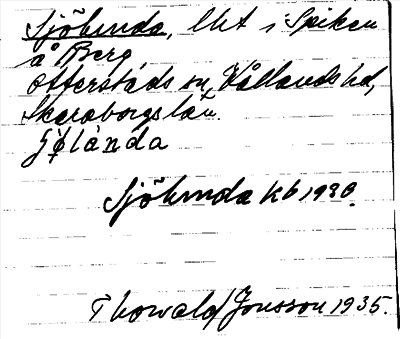 Sjöbinda, lht i Spiken
å Berg
Otterstads sn, Kållands hd,
Skaraborgs län.
Sjöbinda kb 1930.
Thorwald Jonsson 1935.